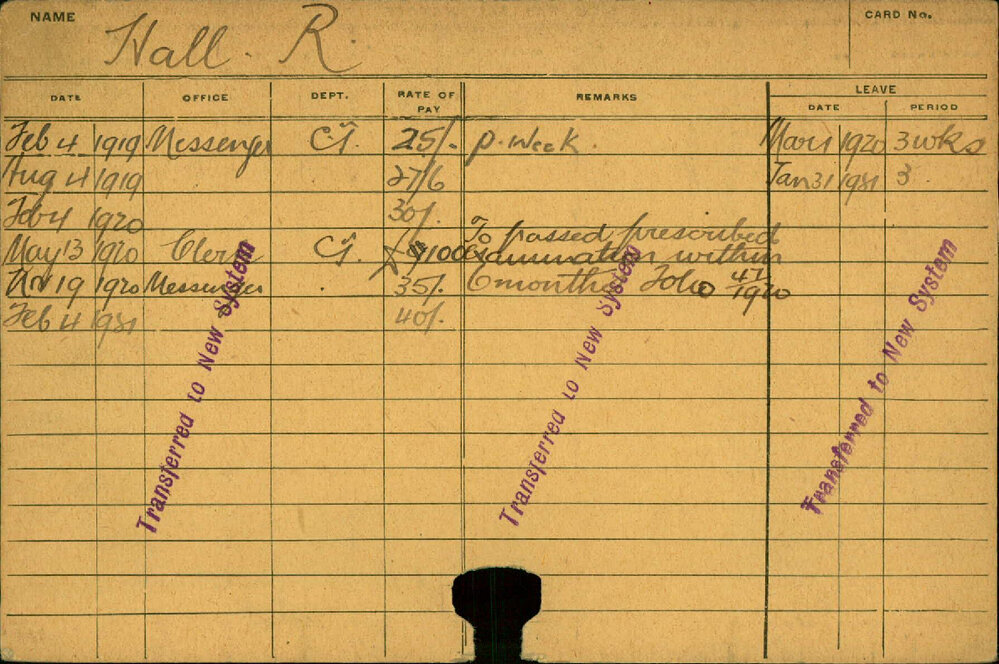 NAME Hall. R. CARD No.
DATE OFFICE DEPT. RATE OF PAY REMARKS LEAVE
DATE PERIOD
Feb 4 1919 Messenger C.T. 25/- p. week. Mar 1 1920 3 wks
Aug 4 1919 27/6 Jan 31 1921 3
Feb 4 1920 30/-
To passed prescribed
May 13 1920 Clerk C.T. £100 examination within
Nov 19 1920 Messenger . 35/- 6 months Folio 47/1920
Feb 4 1921 40/-
Transferred to New System
Transferred to New System
Transferred to New System